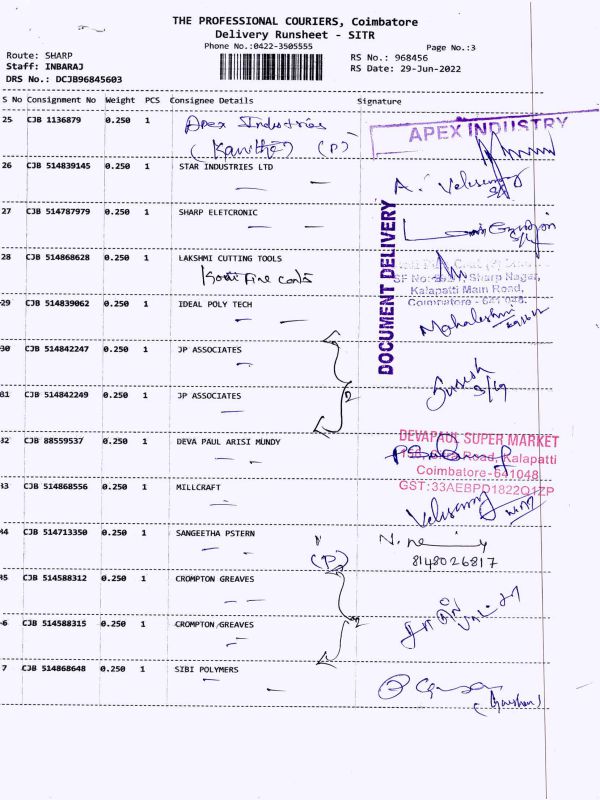 THE PROFESSIONAL COURIERS, Coimbatore
Delivery Runsheet - SITR
Phone No.:0422-3505555
Page No.:3
Route: SHARP
RS No.: 968456
Staff: INBARAJ
RS Date: 29-Jun-2022
DRS No.: DCJB96845603
S No Consignment No Weight PCS Consignee Details Signature
25 CJB 1136879 0.250 1 Apex Industries
(P)
APEX INDUSTRY
26 CJB 514839145 0.250 1 STAR INDUSTRIES LTD
27 CJB 514787979 0.250 1 SHARP ELETCRONIC
DOCUMENT DELIVERY
28 CJB 514868628 0.250 1 LAKSHMI CUTTING TOOLS
Sharp Nagar,
Kalapatti Main Road,
Coimbatore - 641 048.
29 CJB 514839062 0.250 1 IDEAL POLY TECH
Mahalakshmi
30 CJB 514842247 0.250 1 JP ASSOCIATES
2
Suresh
31 CJB 514842249 0.250 1 JP ASSOCIATES
32 CJB 88559537 0.250 1 DEVA PAUL ARISI MUNDY
DEVAPAUL SUPER MARKET
Road, Kalapatti
Coimbatore-641048
GST:33AEBPD1822Q1ZP
33 CJB 514868556 0.250 1 MILLCRAFT
44 CJB 514713350 0.250 1 SANGEETHA PSTERN
(P)
8148026817
45 CJB 514588312 0.250 1 CROMPTON GREAVES
2
6 CJB 514588315 0.250 1 CROMPTON GREAVES
7 CJB 514868648 0.250 1 SIBI POLYMERS